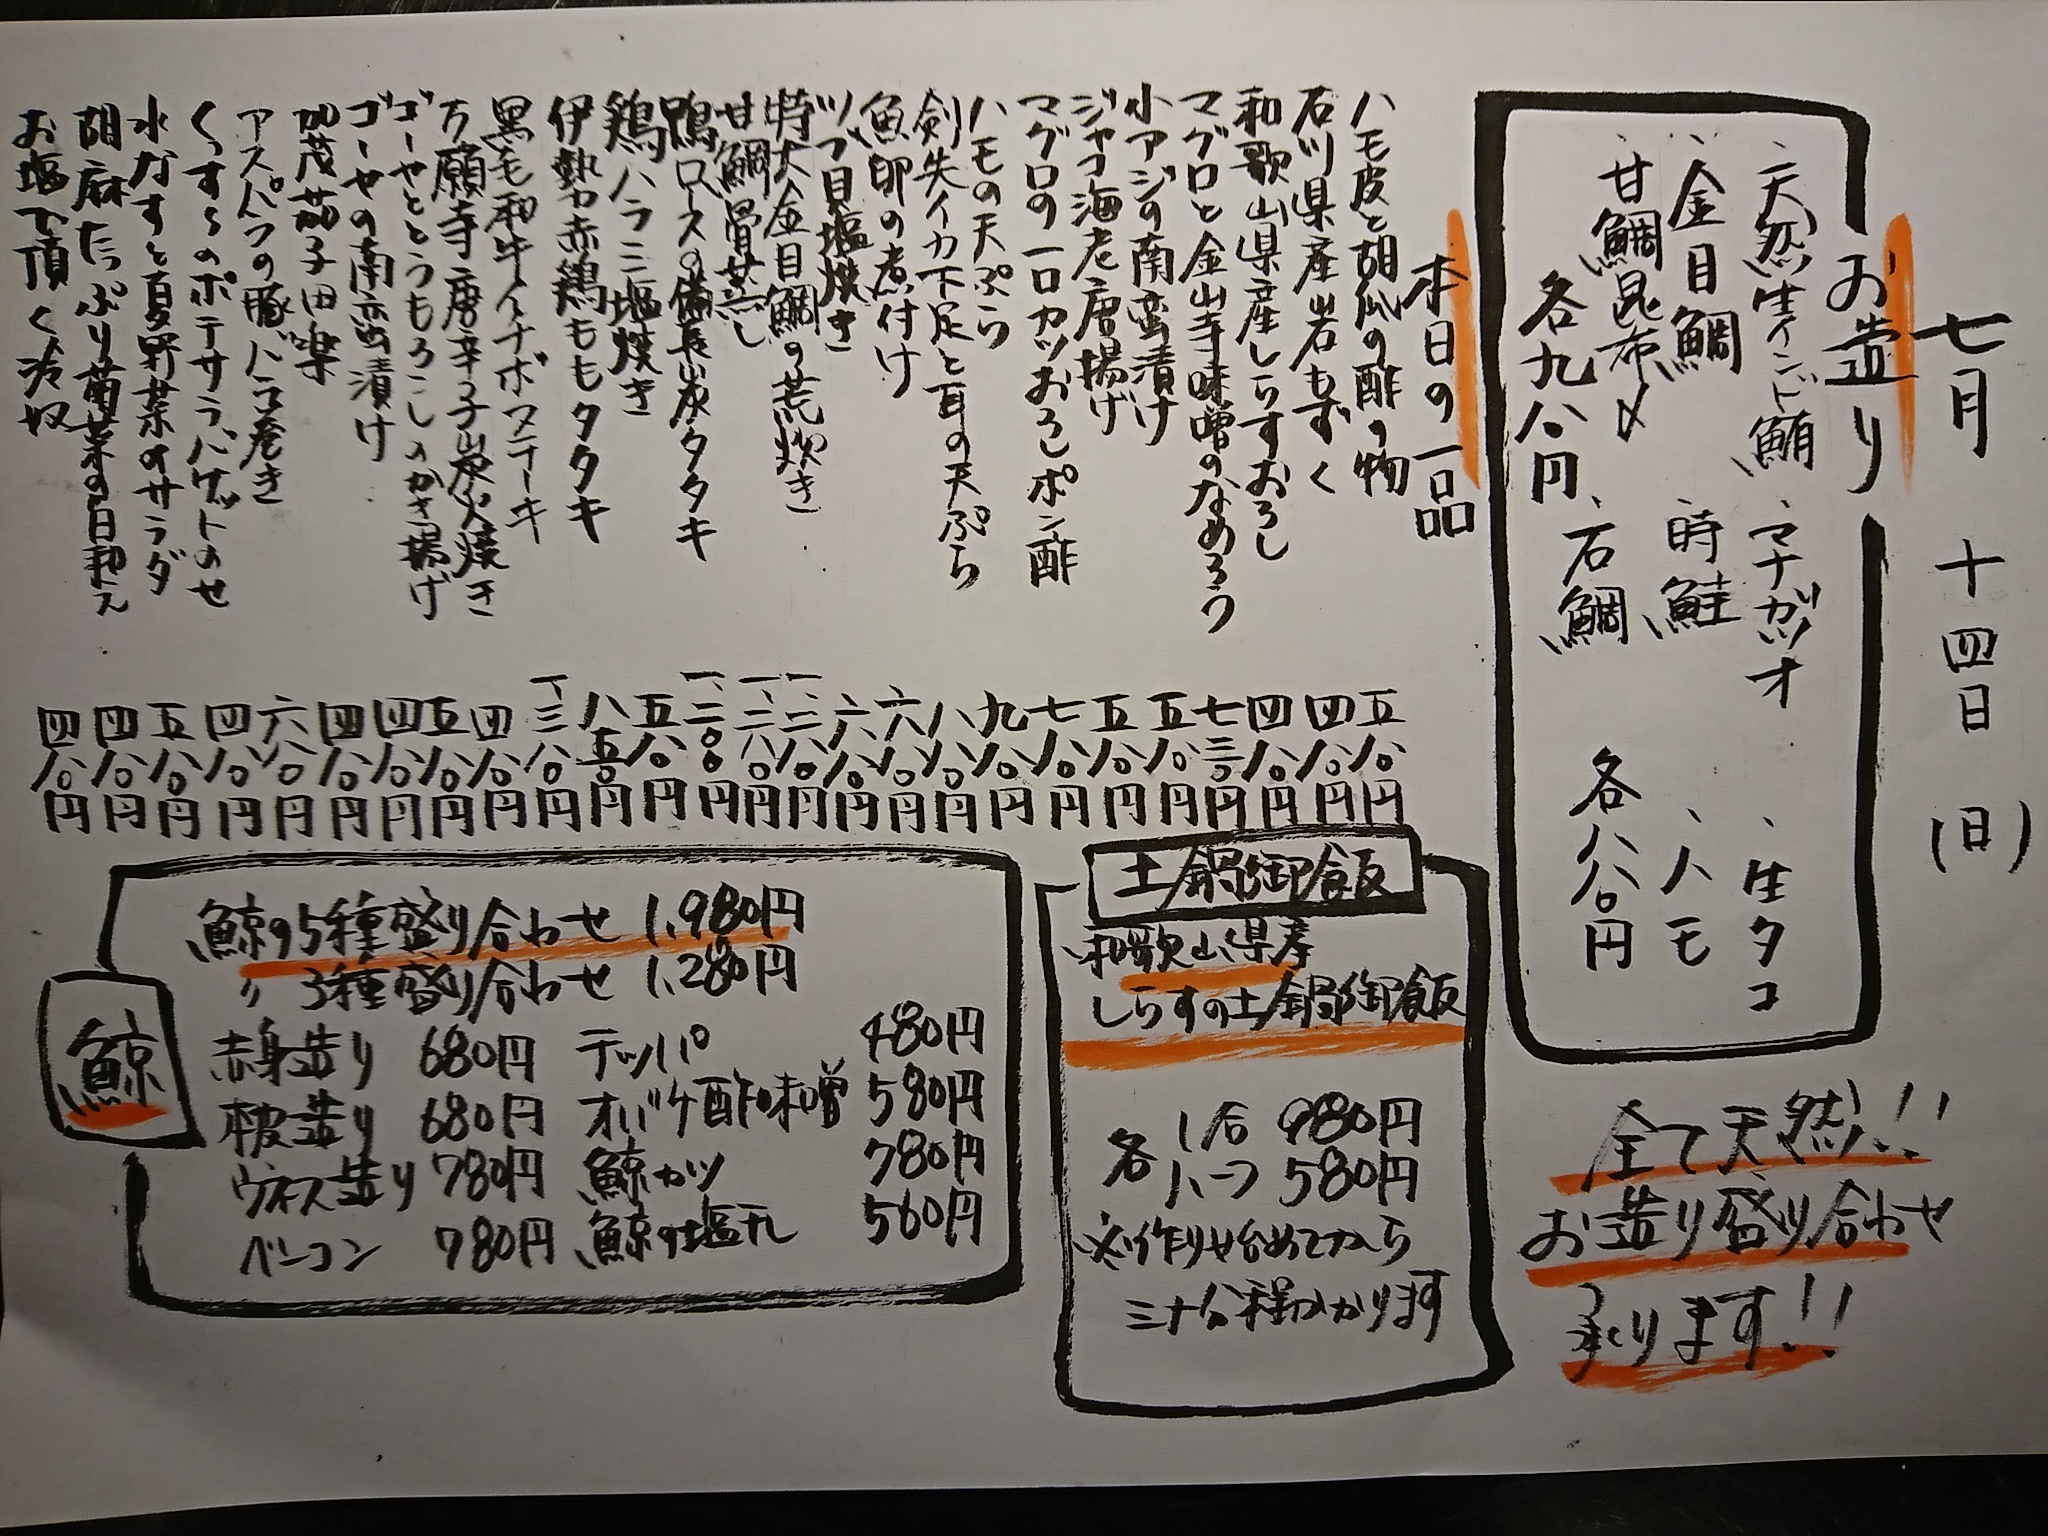 七月 十四日 (日)
お造り
、天然生インド鮪 、マナガツオ 、生タコ
、金目鯛 、時鮭 、ハモ
、甘鯛昆布〆 、石鯛
各九八〇円 各八八〇円
全て天然!!
お造り盛り合わせ
承ります!!
本日の一品
ハモ皮と胡瓜の酢の物 五八〇円
石川県産岩もずく 四八〇円
和歌山県産しらすおろし 四八〇円
マグロと金山寺味噌のなめろう 七三〇円
小アジの南蛮漬け 五八〇円
ジャコ海老唐揚げ 五八〇円
マグロの一口カツおろしポン酢 七八〇円
ハモの天ぷら 九八〇円
剣先イカ下足と耳の天ぷら 八八〇円
魚卵の煮付け 六八〇円
ツブ貝塩焼き 六八〇円
特大金目鯛の荒炊き 一、二八〇円
甘鯛骨蒸し 一、二八〇円
鴨ロースの備長炭タタキ 一、二〇〇円
鶏ハラミ塩焼き 五八〇円
伊勢赤鶏ももタタキ 八五〇円
黒毛和牛イチボステーキ 一、三八〇円
万願寺唐辛子炭火焼き 四八〇円
ゴーヤととうもろこしのかき揚げ 五八〇円
ゴーヤの南蛮漬け 四八〇円
加茂茄子田楽 四八〇円
アスパラの豚バラ巻き 六八〇円
くっすらのポテサラバゲットのせ 四八〇円
水なすと夏野菜のサラダ 五八〇円
胡麻たっぷり菊菜の白和え 四八〇円
お塩で頂く冷奴 四八〇円
土鍋御飯
和歌山県産
しらすの土鍋御飯
各 1合 980円
ハーフ 580円
※作り始めてから
三十分程かかります
鯨
鯨の5種盛り合わせ 1,980円
〃 3種盛り合わせ 1,280円
赤身造り 680円 テッパ 480円
本皮造り 680円 オバケ酢味噌 580円
ウネス造り 780円 鯨カツ 780円
ベーコン 780円 鯨の塩干し 560円